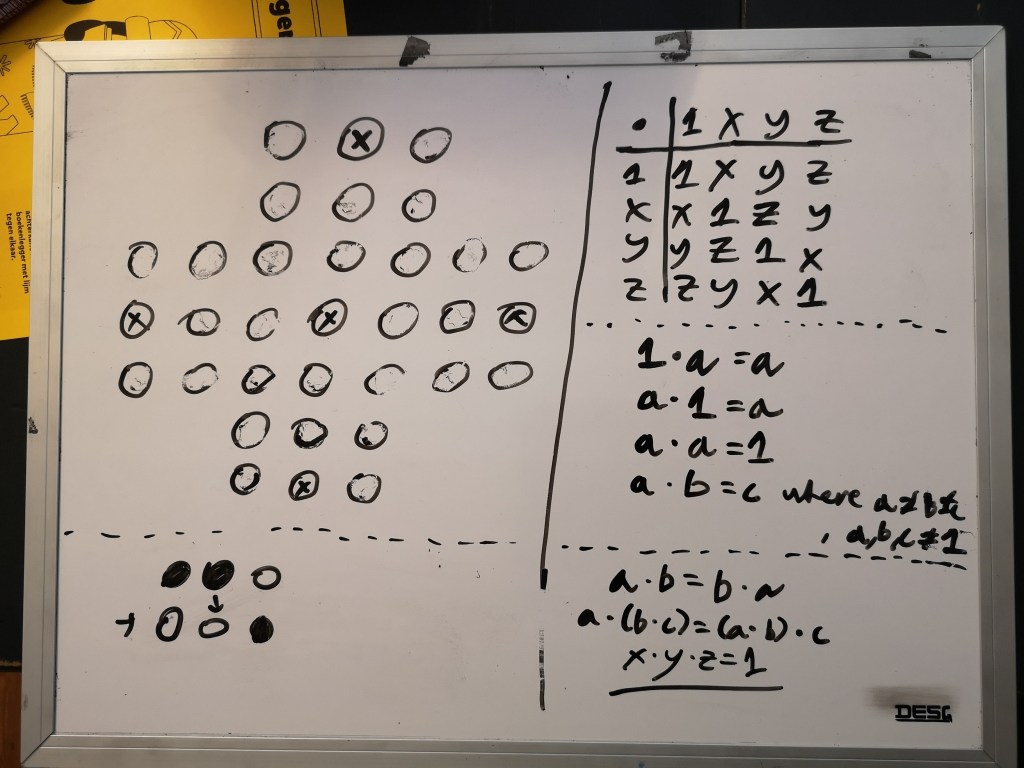 gen
achterkant
boekenlegger met lijm
tegen elkaar.
• 1 x y z
1 1 x y z
x x 1 z y
y y z 1 x
z z y x 1
1 · a = a
a · 1 = a
a · a = 1
a · b = c where a ≠ b ≠ c
, a, b, c ≠ 1
a · b = b · a
a · (b · c) = (a · b) · c
x · y · z = 1
x
x x x
x
DESG